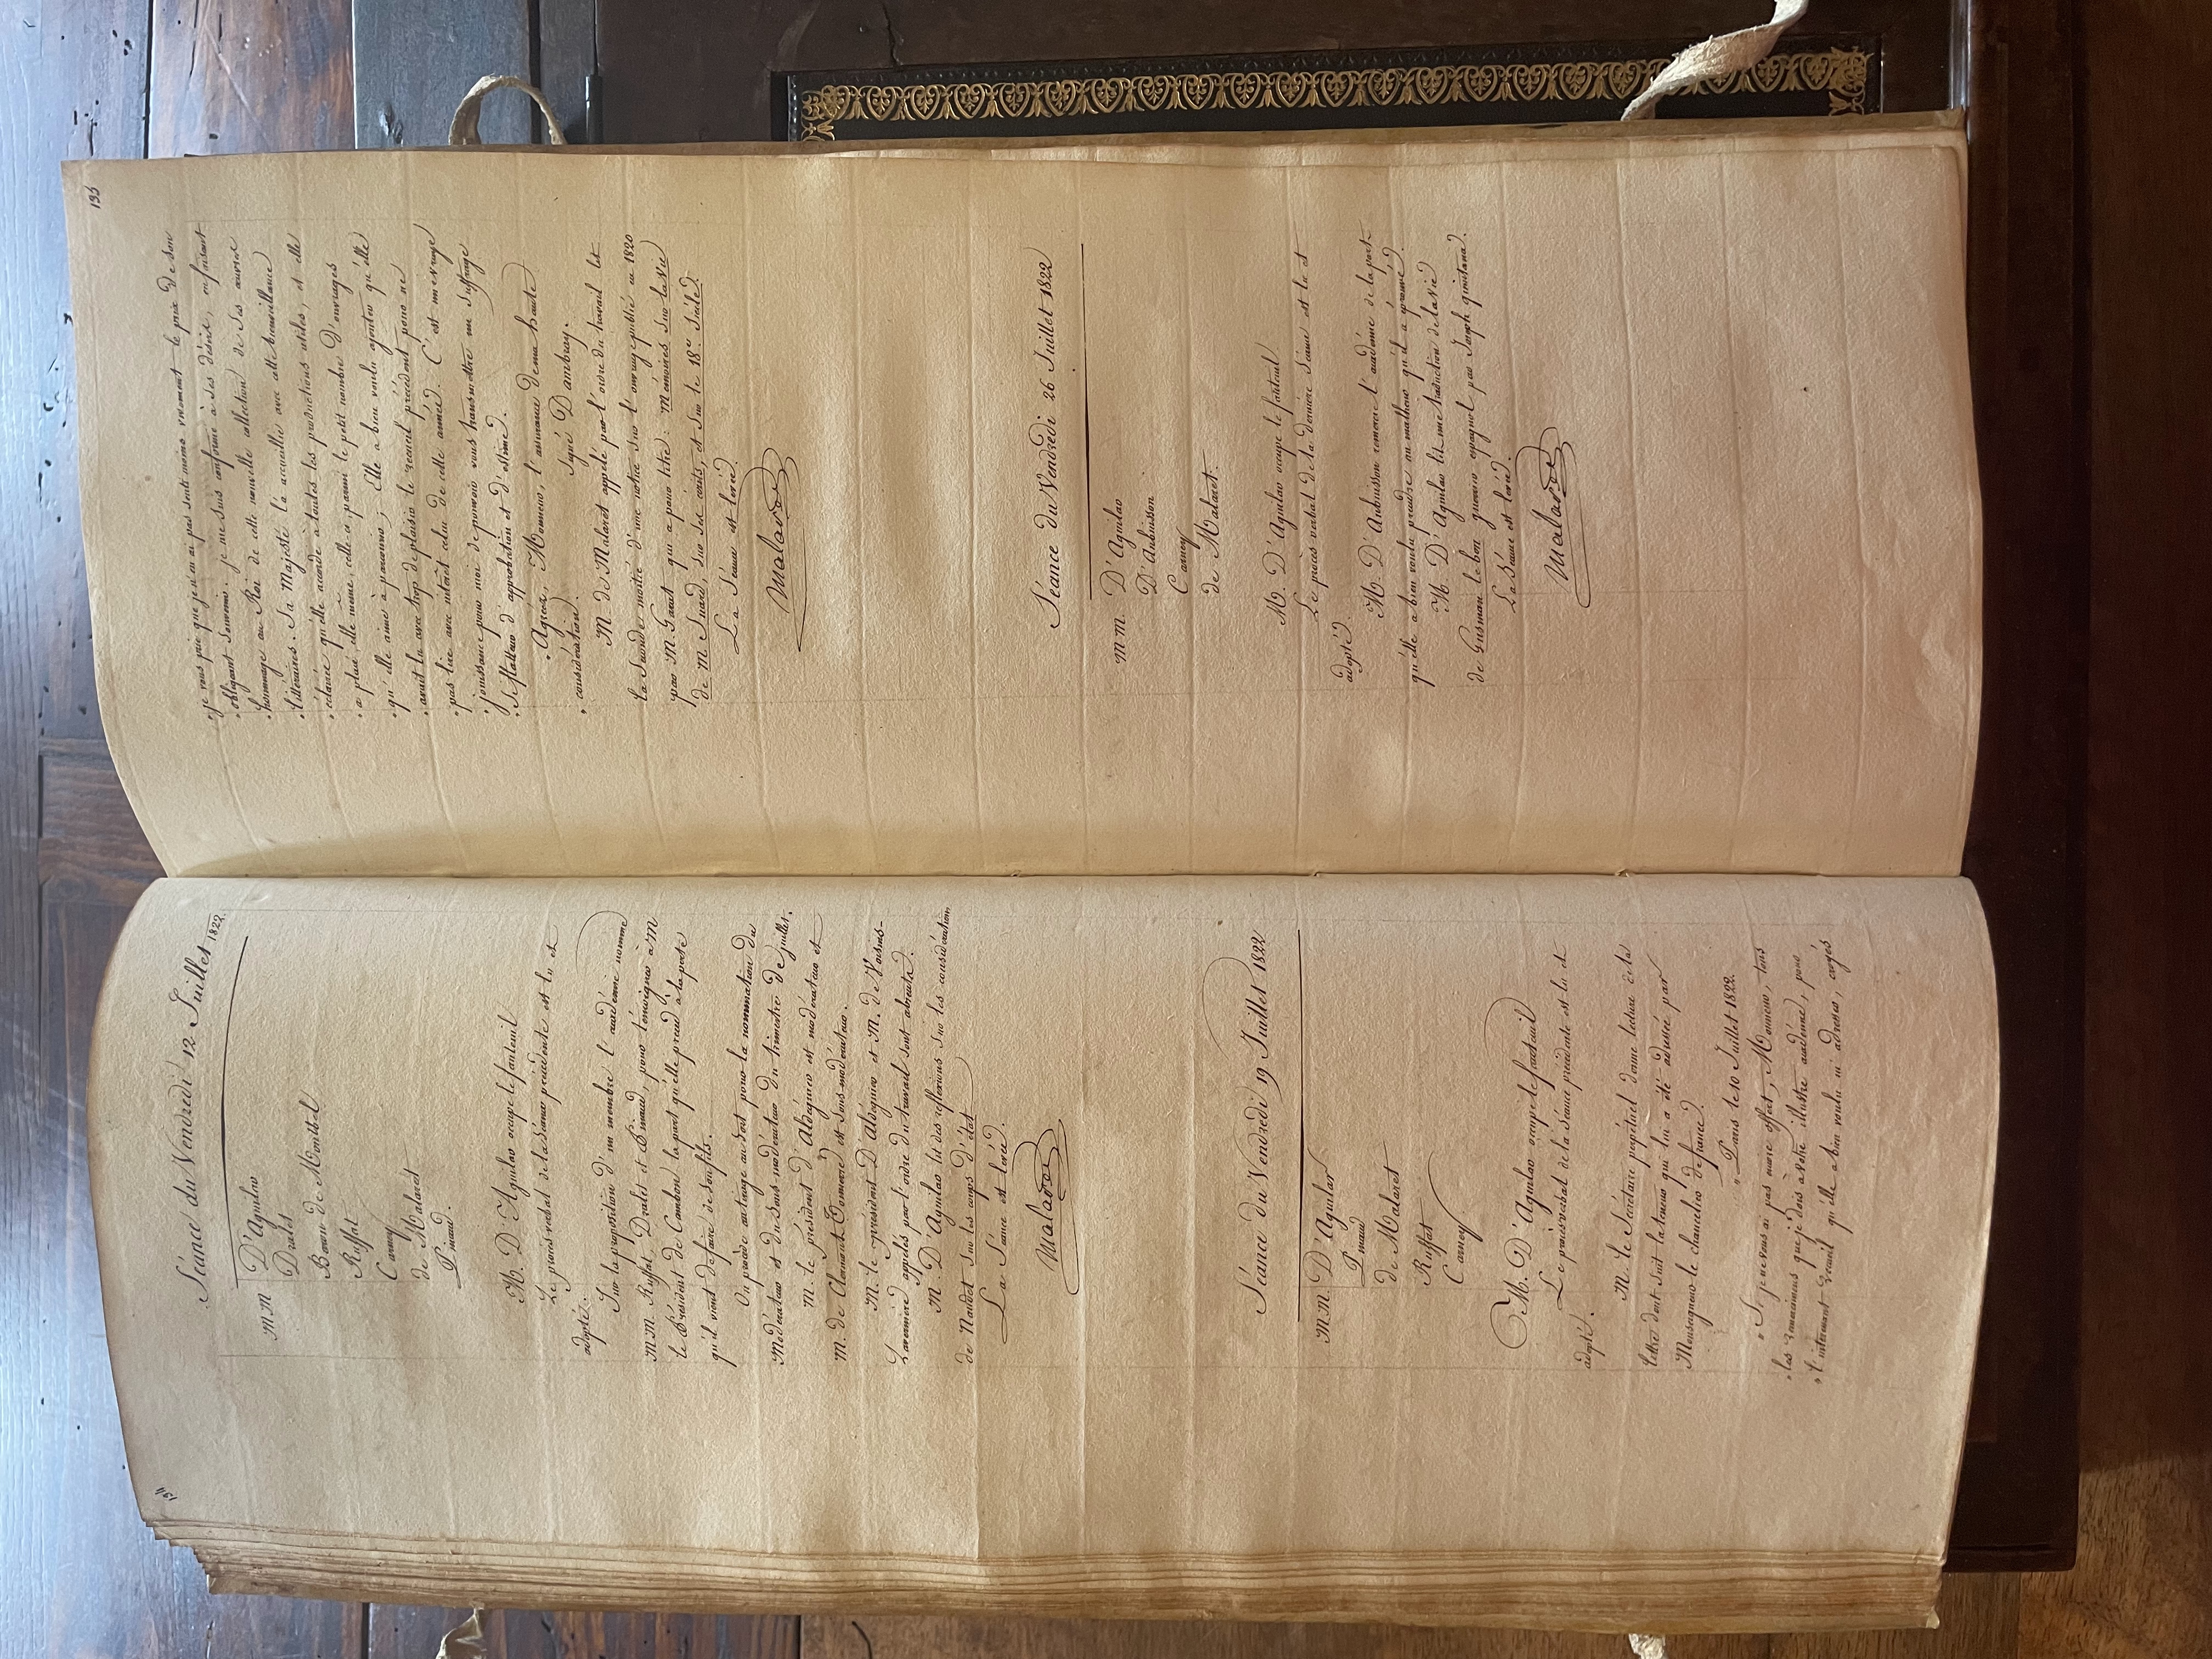 194
Séance du Vendredi 12 Juillet 1822.
M M D'Aguilar
Dralet
Baron de Montbel
Ruffat
Carney
de Malaret
Pinaud.
M. D'Aguilar occupe le fauteuil
Le procès verbal de la séance précédente est lu et
adopté.
Sur la proposition d'un membre l'académie nomme
M M. Ruffat, Dralet et Pinaud, pour témoigner à M
le Président de Cambon la part qu'elle prend à la perte
qu'il vient de faire de son fils.
On procède au tirage au sort pour la nomination du
Modérateur et du Sous-modérateur du trimestre de juillet.
M. le président d'Aldéguier est modérateur et
M. de Clarmont Tonnerre est Sous-modérateur.
M. le président D'Aldéguier et M. de Voisins-
Lavernière appelés par l'ordre du travail sont absents.
M. D'Aguilar lit des réflexions sur les considérations
de Naudet sur les coups d'état
La Séance est levée.
Malaret
Séance du Vendredi 19 Juillet 1822
M M. D'Aguilar
Pinaud
de Malaret
Ruffat
Carney.
M. D'Aguilar occupe le fauteuil
Le procès verbal de la Séance précédente est lu et
adopté.
M. le Secrétaire perpétuel donne lecture de la
lettre dont suit la teneur qui lui a été adressée par
Monseigneur le chancelier de france.
" Paris le 10 Juillet 1822.
" Si je ne vous ai pas encore offert, Monsieur, tous
" les remerciemens que je dois à votre illustre académie, pour
" l'intéressant recueil qu'elle a bien voulu m'adresser, croyés
195
" je vous prie que je n'en ai pas senti moins vivement le prix de son
" obligeant souvenir. je me suis conformé à ses désirs, en faisant
" hommage au Roi de cette nouvelle collection de ses œuvres
" littéraires. Sa Majesté l'a accueillie avec cette bienveillance
" éclairée qu'elle accorde à toutes les productions utiles, et elle
" a placé elle même, celle ci parmi le petit nombre d'ouvrages
" qu'elle aime à parcourir ; Elle a bien voulu ajouter qu'elle
" avait lu avec trop de plaisir le recueil précédent pour ne
" pas lire avec intérêt celui de cette année. C'est une vraye
" jouissance pour moi de pouvoir vous transmettre un suffrage
" si flatteur d'approbation et d'estime.
" Agréez, Monsieur, l'assurance de ma haute
" considération. Signé Dambray.
M de Malaret appelé par l'ordre du travail lit
la seconde moitié d'une notice sur l'ouvrage publié en 1820
par M. Garat qui a pour titre : Mémoires sur la vie
de M Suard, sur ses écrits, et sur le 18e siècle.
La Séance est levée.
Malaret
Séance du Vendredi 26 Juillet 1822
M M. D'Aguilar
D'Aubuisson
Carney
de Malaret.
M. D'Aguilar occupe le fauteuil
Le procès verbal de la dernière Séance est lu et
adopté.
M. D'Aubuisson remercie l'académie de la part
qu'elle a bien voulu prendre au malheur qu'il a éprouvé.
M. D'Aguilar lit une traduction de la vie
de Gusman le bon guerrier espagnol par Joseph quintana.
La Séance est levée.
Malaret